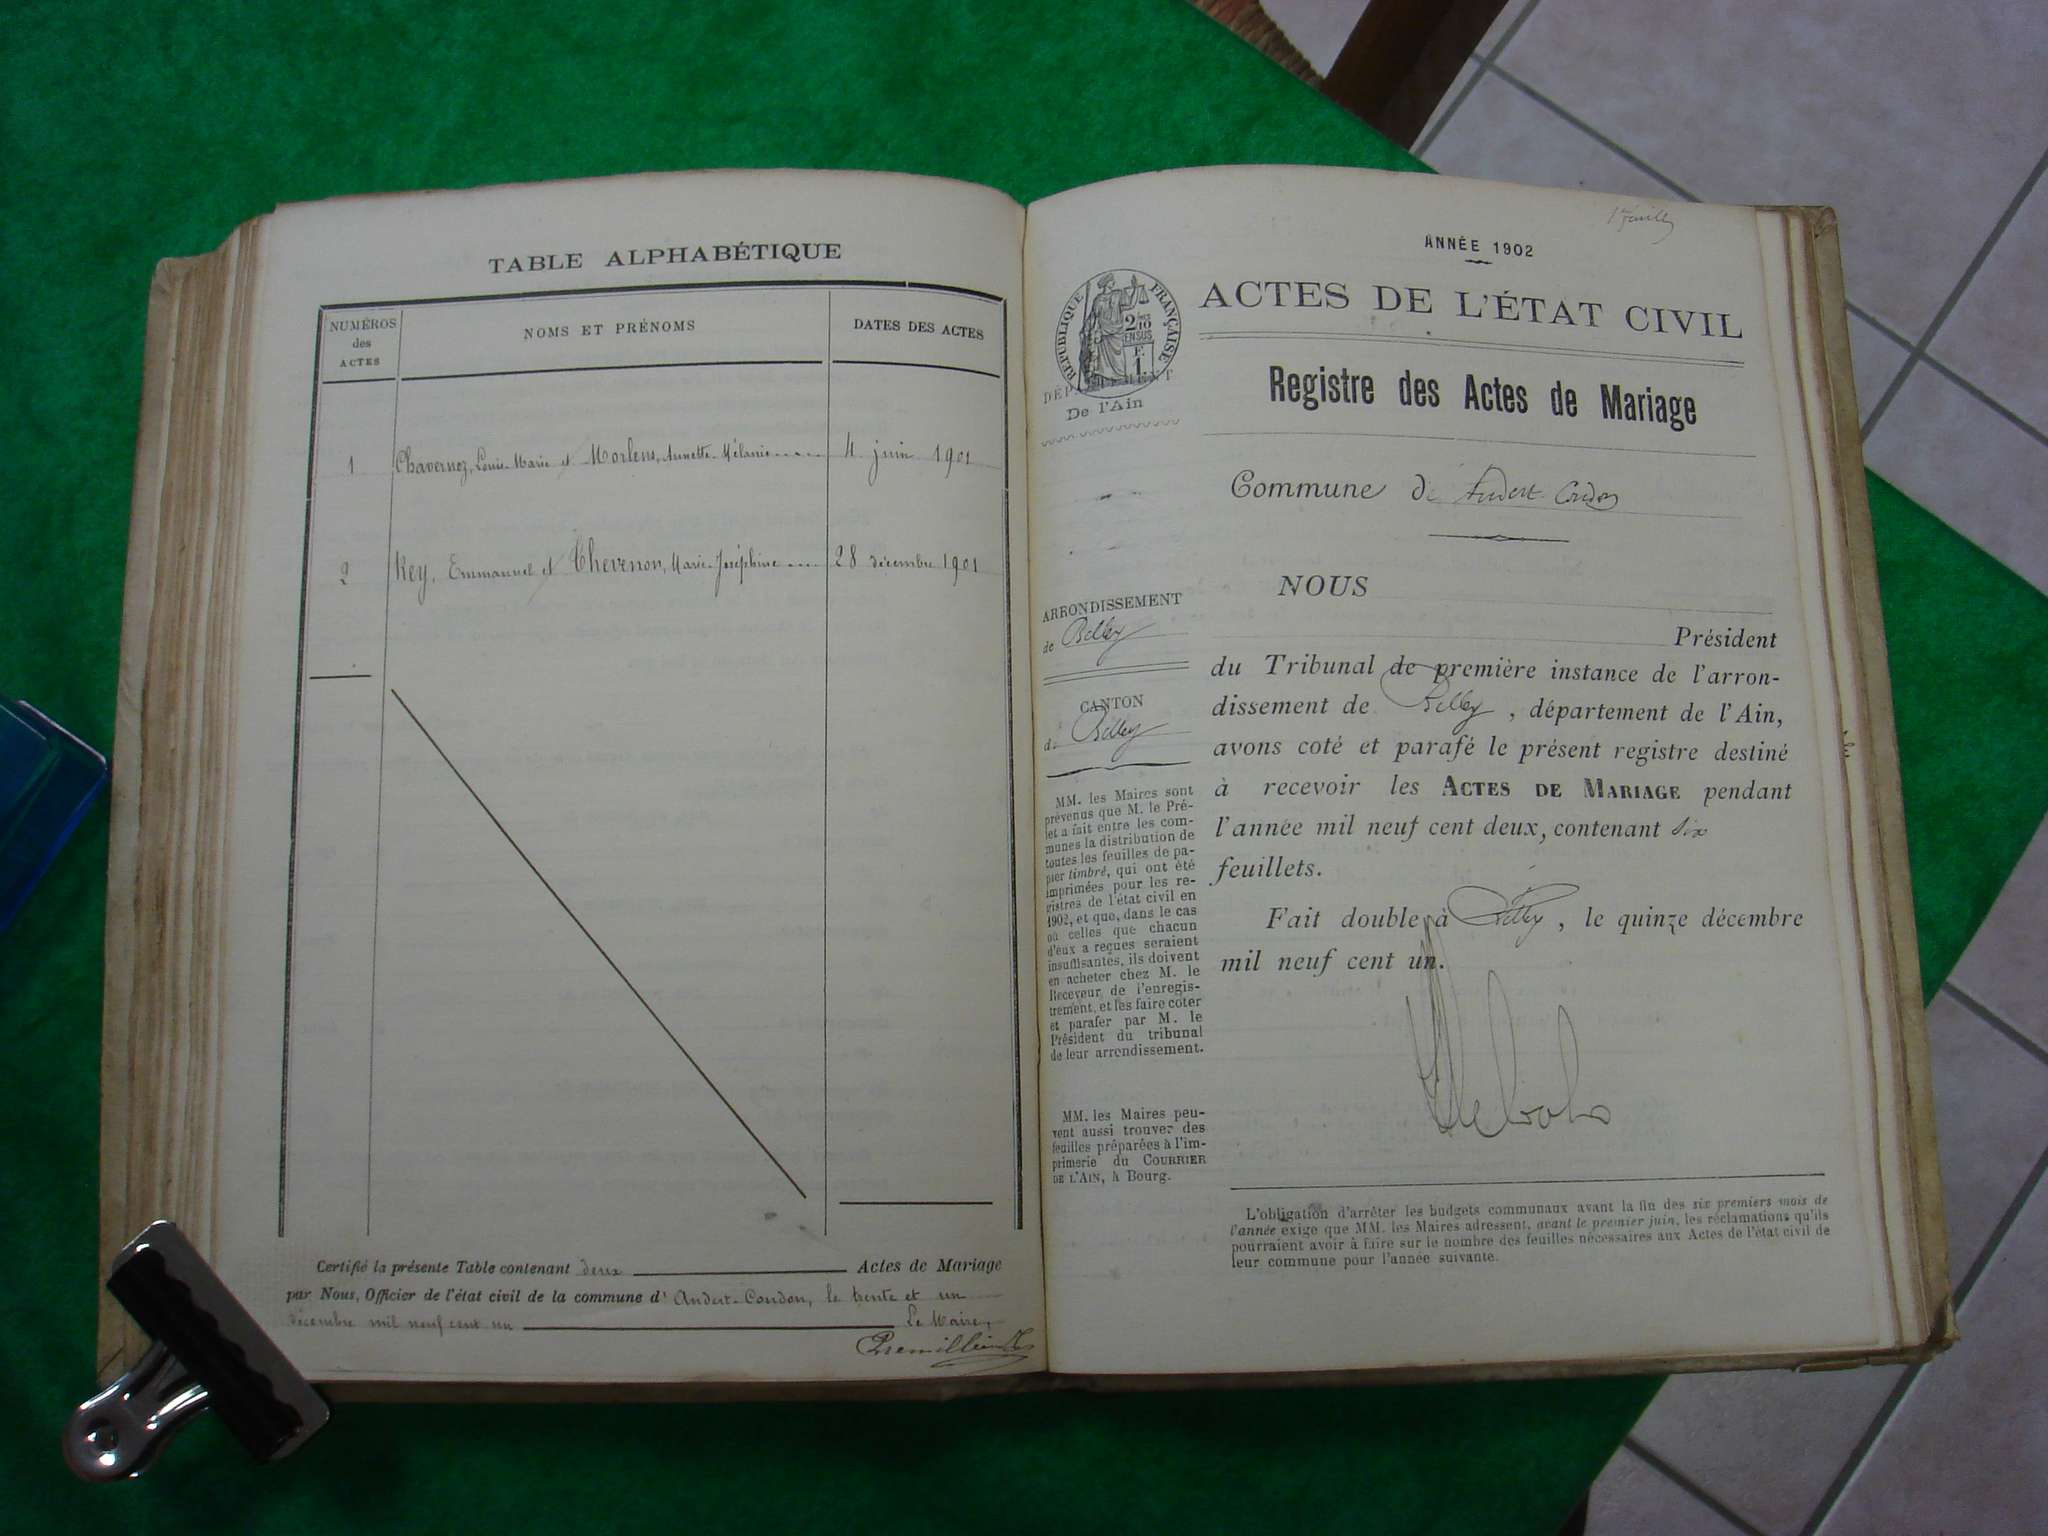 TABLE ALPHABÉTIQUE
NUMÉROS
des
ACTES
NOMS ET PRÉNOMS
DATES DES ACTES
1 Chavernoz, Louis-Marie et Morlens, Annette-Mélanie 4 juin 1901
2 Rey, Emmanuel et Thevenon, Marie-Joséphine 28 décembre 1901
Certifié la présente Table contenant deux Actes de Mariage
par Nous, Officier de l'état civil de la commune d' Andert-Condon, le trente et un
décembre mil neuf cent un Le Maire,
1er feuillet
ANNÉE 1902
ACTES DE L'ÉTAT CIVIL
Registre des Actes de Mariage
RÉPUBLIQUE FRANÇAISE
2/10 EN SUS
F. 1.
De l'Ain
Commune de Andert-Condon
NOUS
Président
du Tribunal de première instance de l'arron-
dissement de Belley, département de l'Ain,
avons coté et parafé le présent registre destiné
à recevoir les ACTES DE MARIAGE pendant
l'année mil neuf cent deux, contenant six
feuillets.
Fait double à Belley, le quinze décembre
mil neuf cent un.
ARRONDISSEMENT
de Belley
CANTON
de Belley
MM. les Maires sont
prévenus que M. le Pré-
fet a fait entre les com-
munes la distribution de
toutes les feuilles de pa-
pier timbré, qui ont été
imprimées pour les re-
gistres de l'état civil en
1902, et que, dans le cas
où celles que chacun
d'eux a reçues seraient
insuffisantes, ils doivent
en acheter chez M. le
Receveur de l'enregis-
trement, et les faire coter
et parafer par M. le
Président du tribunal
de leur arrondissement.
MM. les Maires peu-
vent aussi trouver des
feuilles préparées à l'im-
primerie du COURRIER
DE L'AIN, à Bourg.
L'obligation d'arrêter les budgets communaux avant la fin des six premiers mois de
l'année exige que MM. les Maires adressent, avant le premier juin, les réclamations qu'ils
pourraient avoir à faire sur le nombre des feuilles nécessaires aux Actes de l'état civil de
leur commune pour l'année suivante.